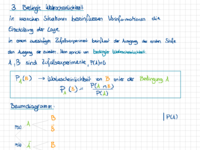 3 Bedingte Wahrscheinlichkeit
In manchen Situationen beeinflussen Vorinformationen die
Einschätzung der Lage
In einem zweistufigen Zufallsexperiment beeinflusst der Ausgang der ersten Stufe
den Ausgang der zweiten. Man spricht von bedingter Wahrscheinlichkeit
A, B sind Zufallsexperimente, P(A)>0
P_A(B) → Wahrscheinlichkeit von B unter der Bedingung A
P_A(B) = P(A∩B) / P(A)
Baumdiagramm:
| P(A)
B
P(A) A
B
B
A